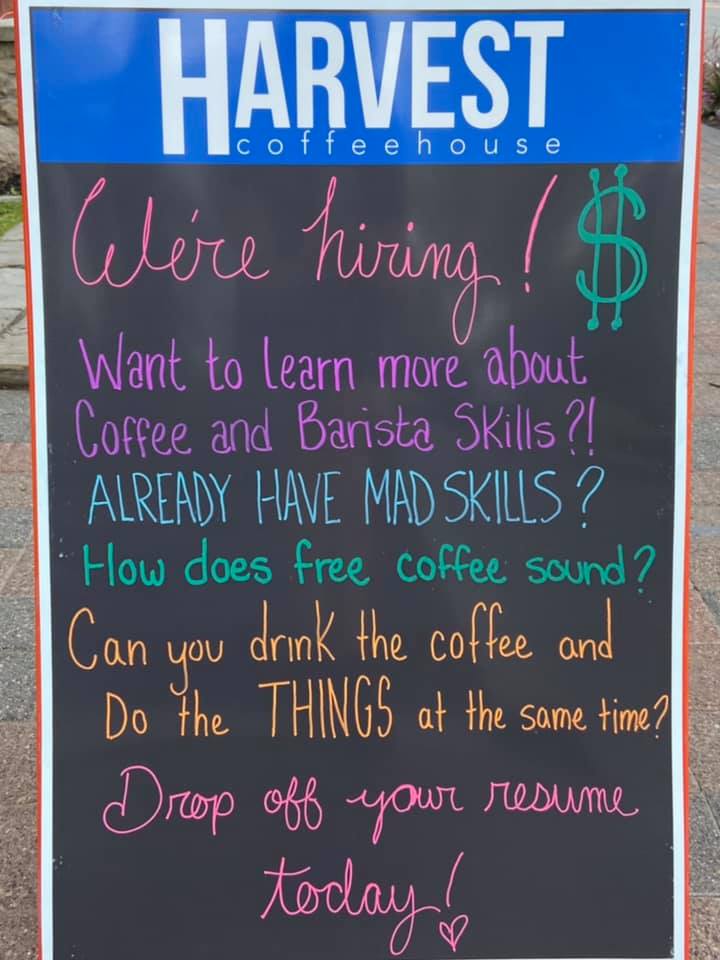 HARVEST
coffeehouse
We're hiring! $
Want to learn more about
Coffee and Barista Skills?!
ALREADY HAVE MAD SKILLS?
How does free coffee sound?
Can you drink the coffee and
Do the THINGS at the same time?
Drop off your resume
today!